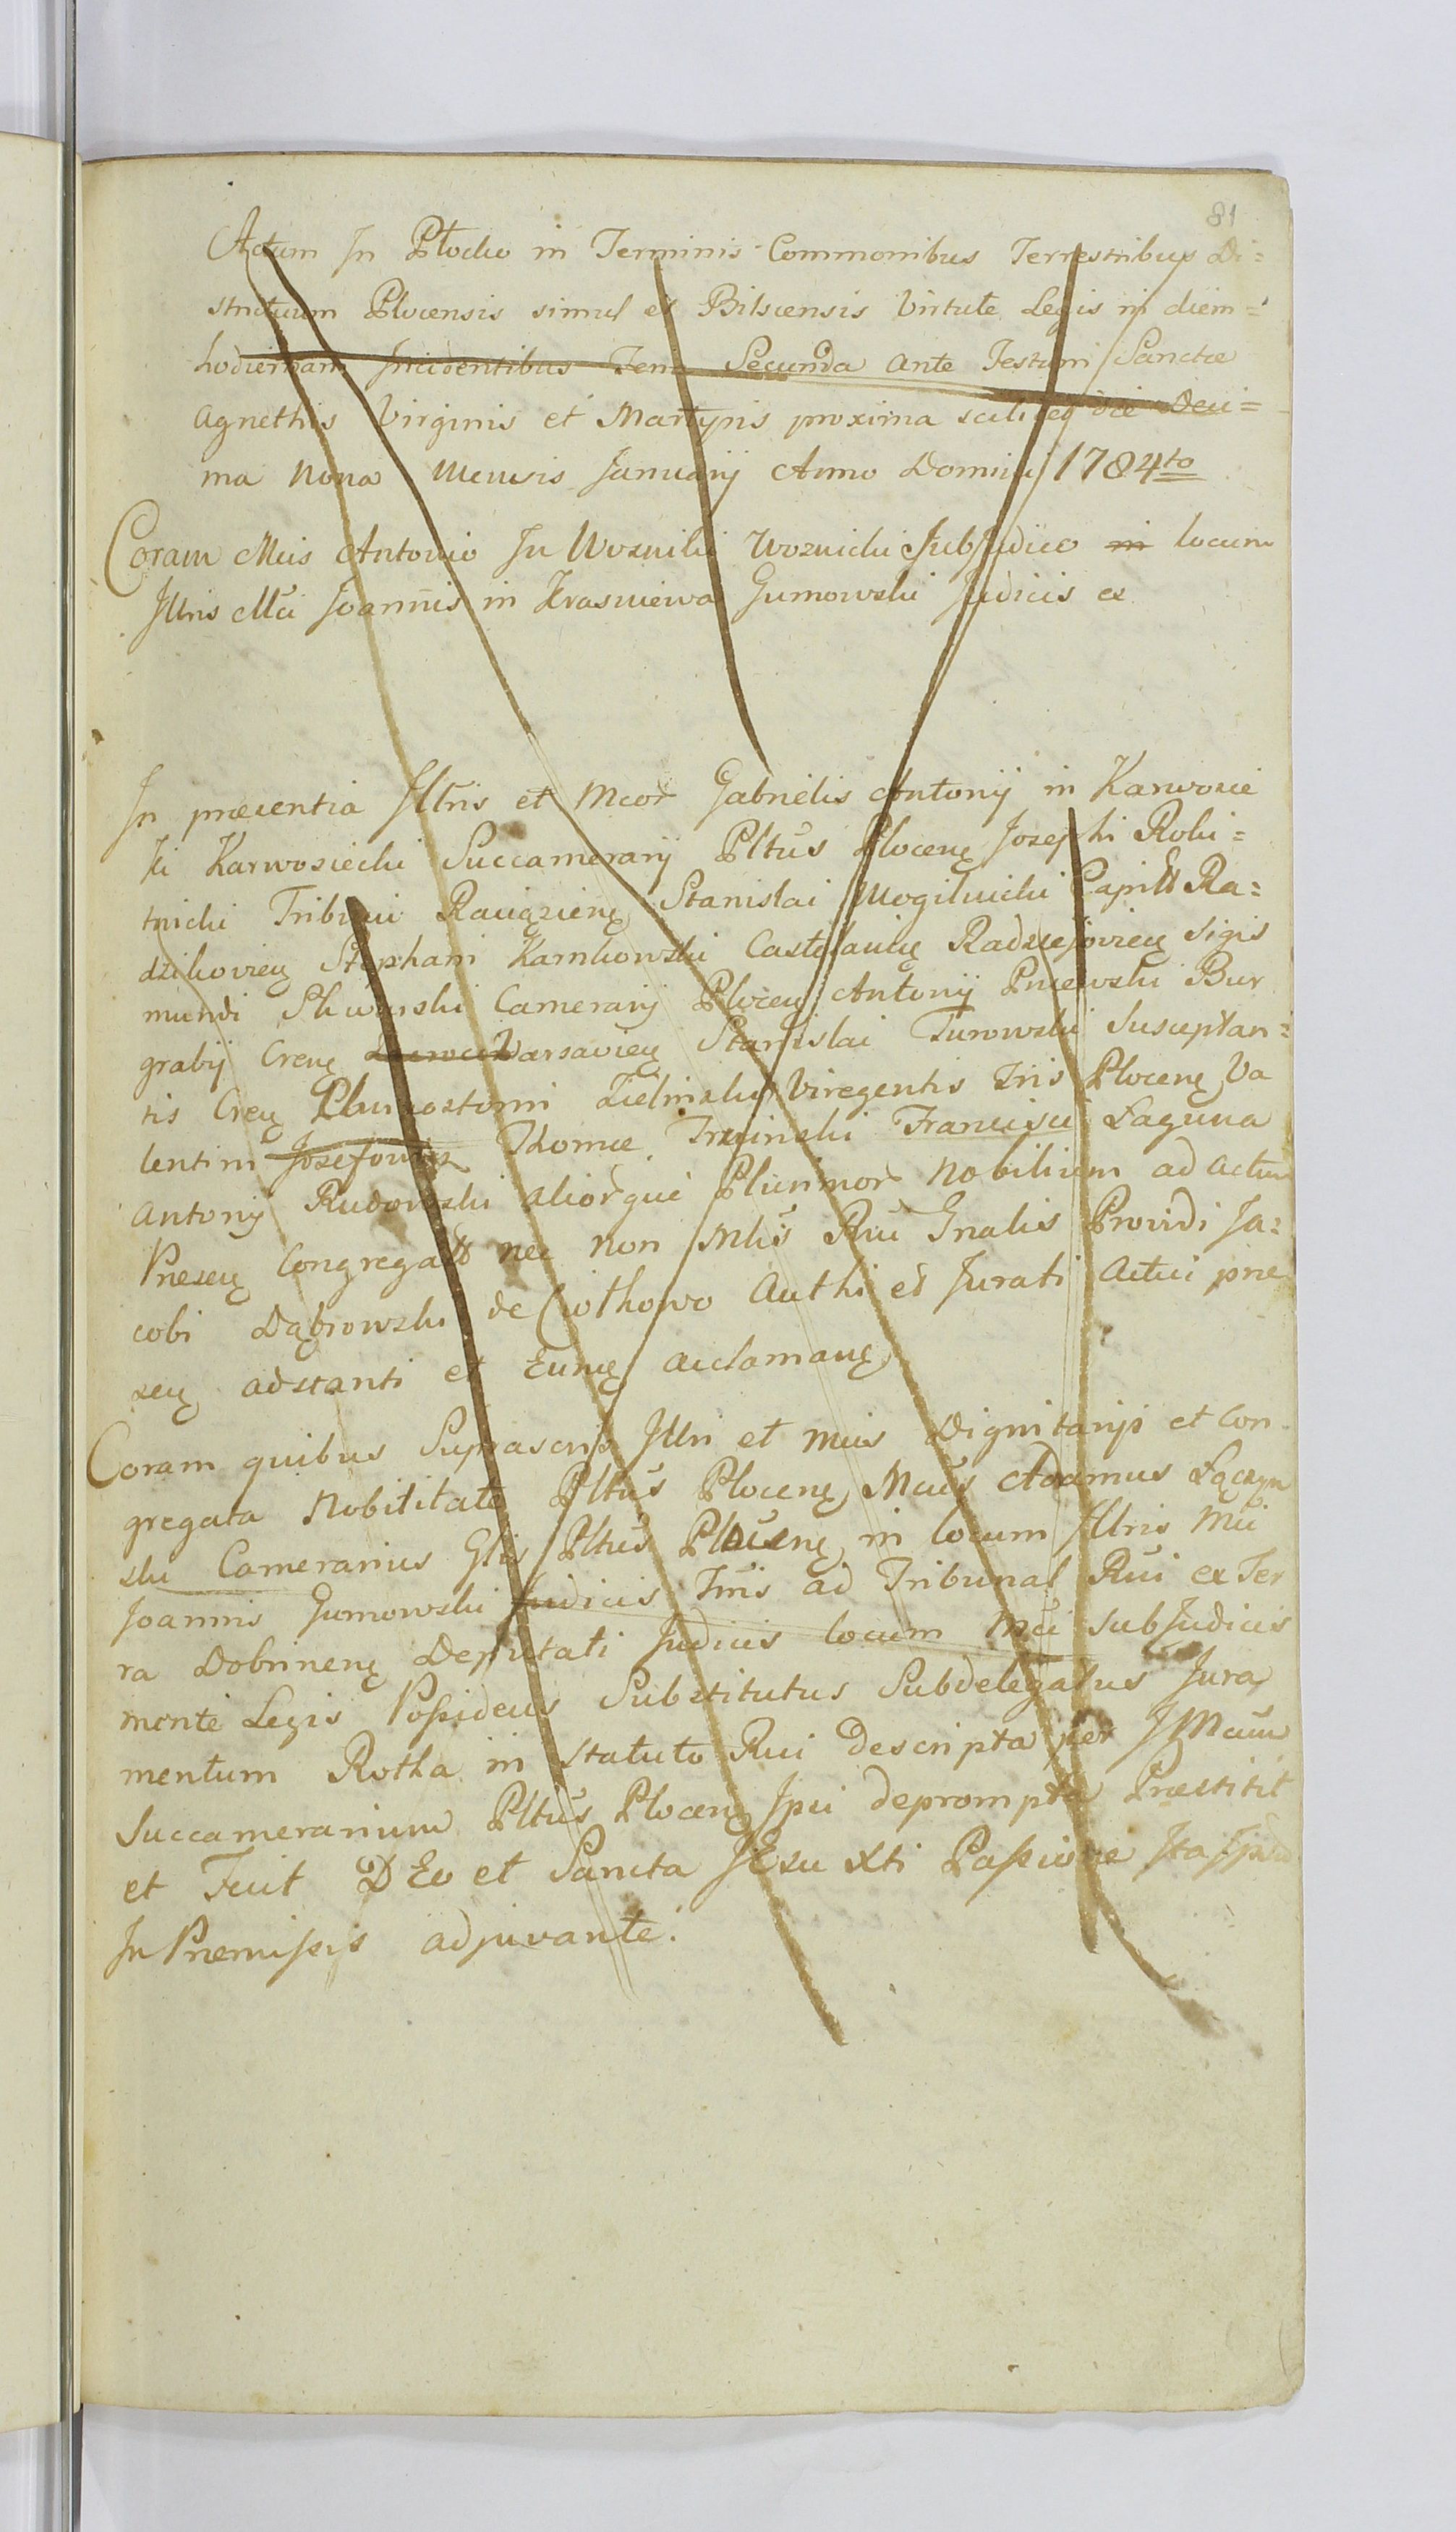 81
Actum In Płocko in Terminis Commonibus Terrestribus Di=
strictuum Plocensis simul et Bilscensis Virtute Legis in diem=
hodiernam Incidentibus Feria Secunda ante Festum Sanctæ
Agnethis Virginis et Martyris proxima scilicet die Deci=
ma Nona Mensis Januarij Anno Domini 1784to
Coram Mcis Antonio In Woznihi Woznicki SubJudice in locum
Illris Mci Joannis in Krasniewa Gumowski Judicis ex
In præcentia Illris et Mcor Gabrielis Antonij in Karwosie
ki Karwosiecki Succamerarij Pltus Plocenę Josephi Roki=
tnicki Tribuni Raciązienę Stanislai Mogilnicki Capitt Ra=
dzikovieę Stephani Karnkowski Castellanię Radziejovieę Sigis
mundi Camerarij Ploceę Antonij Pniewski Bur
grabij Crenę Warsavieę Stanislai Turowski Susceptan=
tis Creę Zielinski Viregentis Tris Plocenę Va
lentini Josefowicz Thomæ Francisci Laguna
Antonij Rudowski aliorque Plurimor Nobilium ad actum
Presenę Congregatt nec non Mlis Rni Gnalis Providi Ja=
cobi Dąbrowski de Authi et Jurati Actui præ
senę adstanti et Eunię acclamanę
Coram quibus Suprascrip Illri et Mcis Dignitarijs et Con-
gregata Nobilitate Pltus Plocenę Mcus Adamus Łączyn
ski Camerarius Glis Pltus Plocenę in locum Illris Mci
Joannis Gumowski Judicis Tris ad Tribunal Rni ex Ter
ra Dobrinenę Deputati Judicis locum Mci SubJudicis
mente Legis Possidens Substitutus Subdelegatus Jura
mentum Rotha in Statuto Rni Descripta per JMcum
Succamerarium Pltus Plocenę Ipsi deprompta Præstitit
et Fecit DEo et Sancta JEsu Xti Passione Ita Ipsum
In Premissis adjuvante.